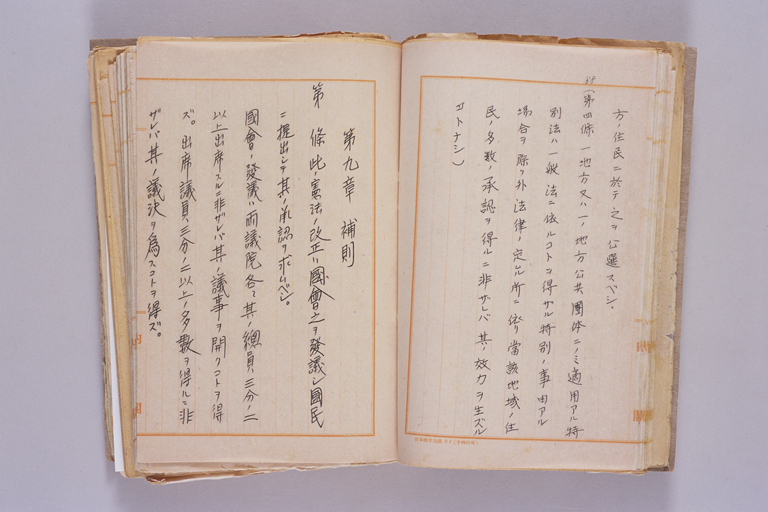 方ノ住民ニ於テ之ヲ公選スベシ。
(第四條 一地方又ハ一ノ地方公共團体ニノミ適用アル特
別法ハ一般法ニ依ルコトヲ得ザル特別ノ事由アル
場合ヲ除ク外法律ノ定ムル所ニ依リ當該地域ノ住
民ノ多数ノ承認ヲ得ルニ非ザレバ其ノ效力ヲ生ズル
コトナシ)
第九章 補則
第 條 此ノ憲法ノ改正ハ國會之ヲ發議シ國民
ニ提出シテ其ノ承認ヲ求ムベシ。
國會ノ發議ハ両議院各々其ノ總員三分ノ二
以上出席スルニ非ザレバ其ノ議事ヲ開クコトヲ得
ズ。出席議員三分ノ二以上ノ多數ヲ得ルニ非
ザレバ其ノ議決ヲ爲スコトヲ得ズ。